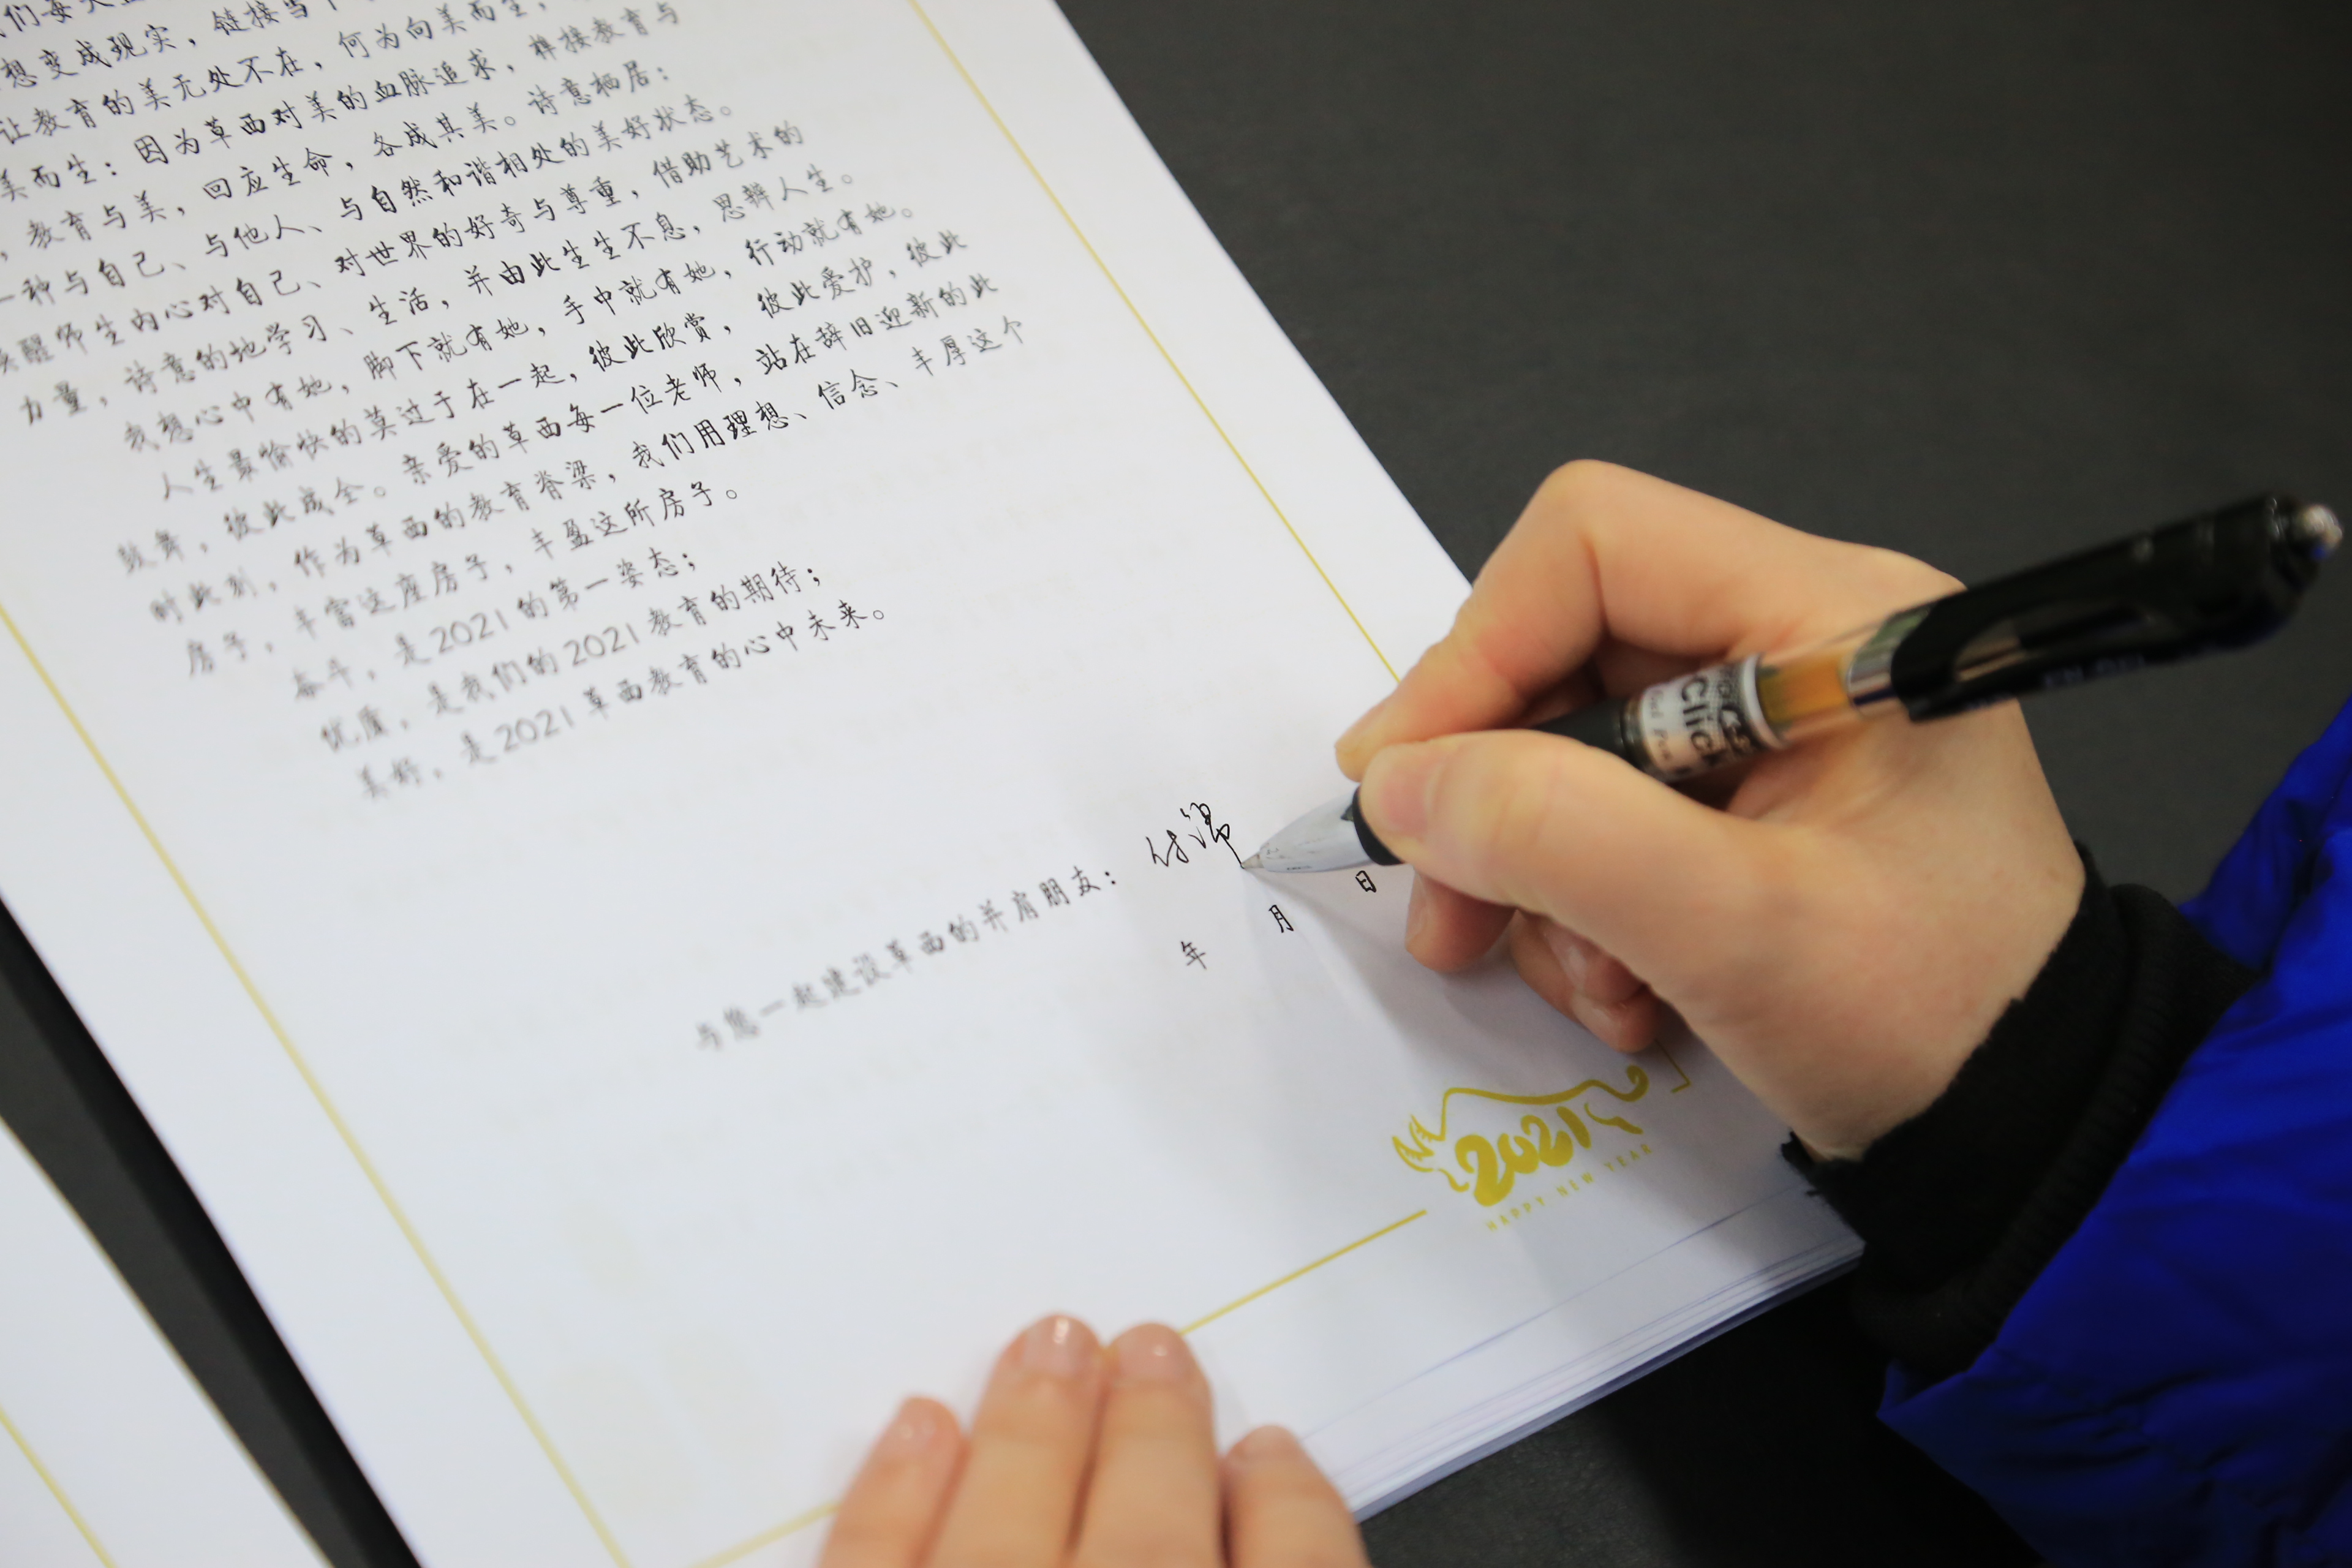 们每天
想变成现实，链接当下
让教育的美无处不在，何为向美而生，
美而生：因为草西对美的血脉追求，榫接教育与
，教育与美，回应生命，各成其美。诗意栖居：
一种与自己、与他人、与自然和谐相处的美好状态。
唤醒师生内心对自己、对世界的好奇与尊重，借助艺术的
力量，诗意的地学习、生活，并由此生生不息，思辨人生。
我想心中有她，脚下就有她，手中就有她，行动就有她。
人生最愉快的莫过于在一起，彼此欣赏，彼此爱护，彼此
鼓舞，彼此成全。亲爱的草西每一位老师，站在辞旧迎新的此
时此刻，作为草西的教育脊梁，我们用理想、信念、丰厚这个
房子，丰富这座房子，丰盈这所房子。
奋斗，是2021的第一姿态；
优质，是我们的2021教育的期待；
美好，是2021草西教育的心中未来。
与您一起建设草西的并肩朋友：付
年 月 日
2021
HAPPY NEW YEAR
Click